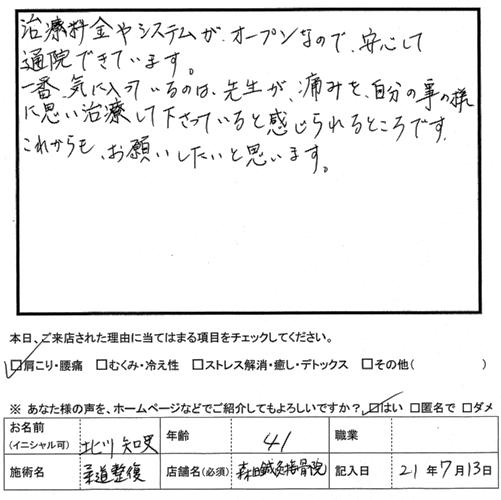 治療料金やシステムが、オープンなので、安心して
通院できています。
一番、気に入っているのは、先生が、痛みを、自分の事の様
に思い治療して下さっていると感じられるところです。
これからも、お願いしたいと思います。
本日、ご来店された理由に当てはまる項目をチェックしてください。
☑肩こり・腰痛 □むくみ・冷え性 □ストレス解消・癒し・デトックス □その他( )
※ あなた様の声を、ホームページなどでご紹介してもよろしいですか? ☑はい □匿名で □ダメ
お名前 (イニシャル可) 北川 知史 年齢 41 職業
施術名 柔道整復 店舗名(必須) 森上鍼灸接骨院 記入日 21年7月13日